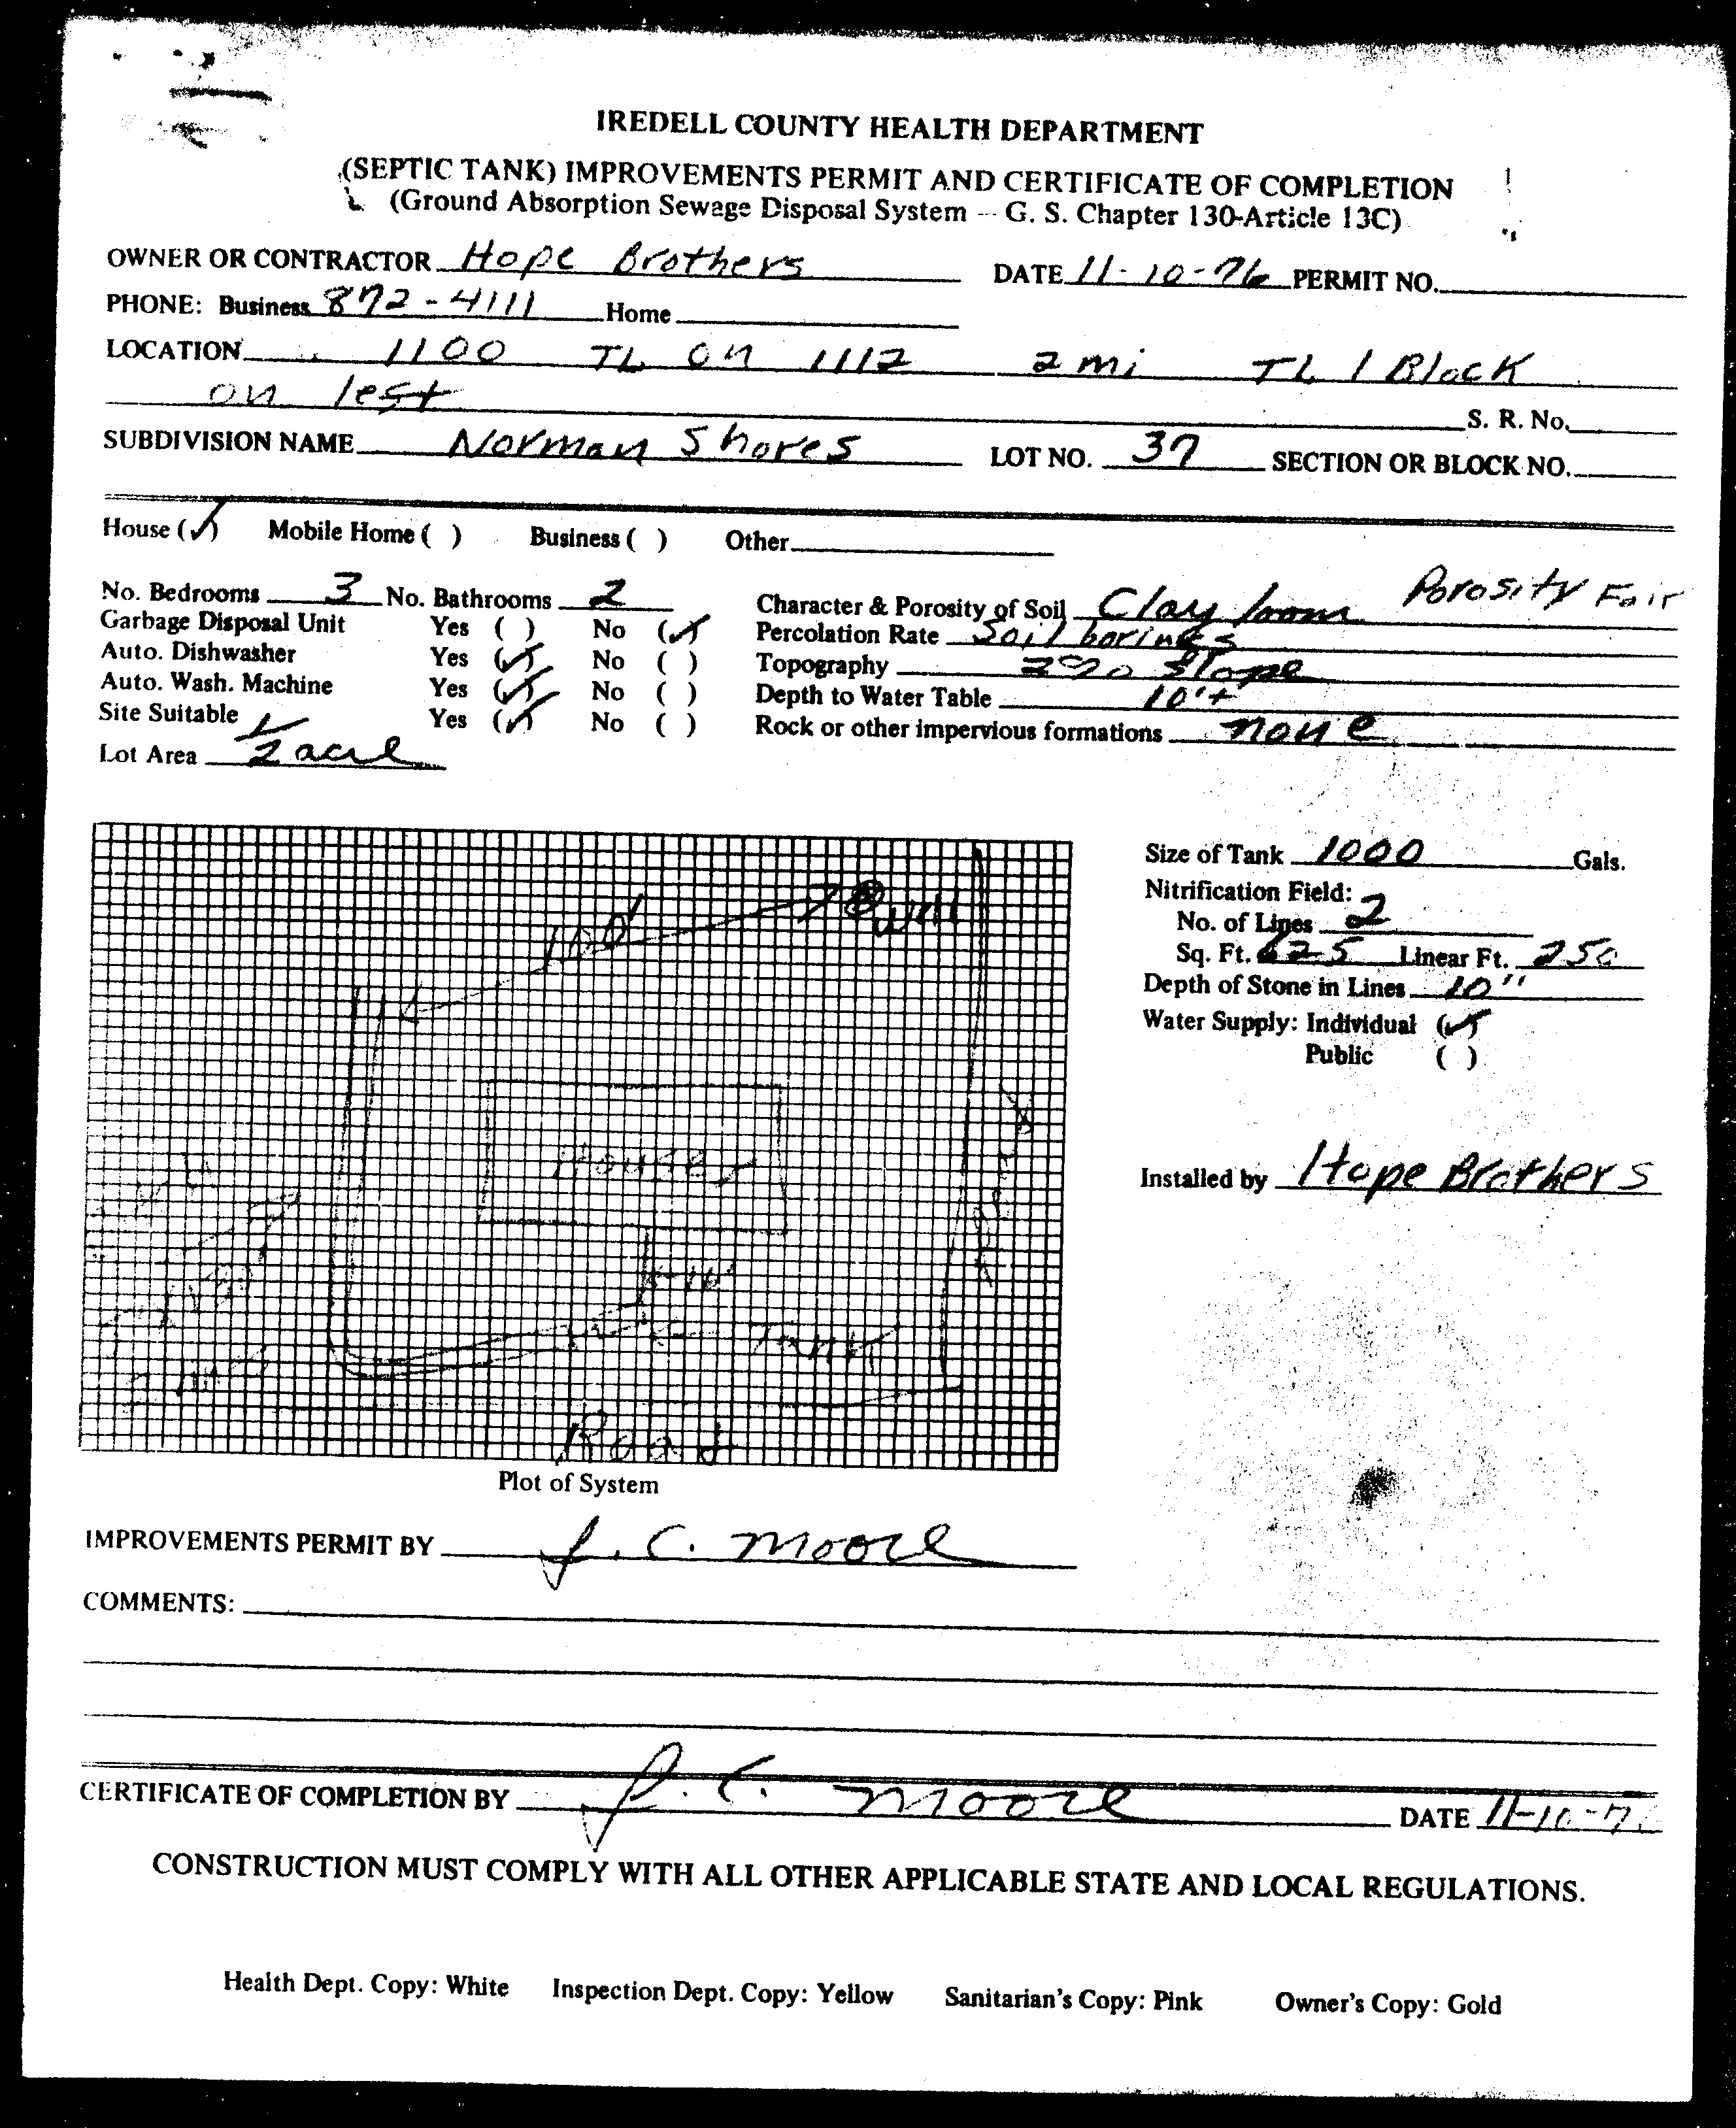 IREDELL COUNTY HEALTH DEPARTMENT
(SEPTIC TANK) IMPROVEMENTS PERMIT AND CERTIFICATE OF COMPLETION
(Ground Absorption Sewage Disposal System -- G. S. Chapter 130-Article 13C)
OWNER OR CONTRACTOR Hope Brothers DATE 11-10-76 PERMIT NO.
PHONE: Business 872-4111 Home
LOCATION 1100 TL on 1112 2 mi TL 1 Block
on left S. R. No.
SUBDIVISION NAME Norman Shores LOT NO. 37 SECTION OR BLOCK NO.
House (✓) Mobile Home ( ) Business ( ) Other
No. Bedrooms 3 No. Bathrooms 2 Character & Porosity of Soil Clay loom Porosity Fair
Garbage Disposal Unit Yes ( ) No (✓) Percolation Rate Soil borings
Auto. Dishwasher Yes (✓) No ( ) Topography 2% slope
Auto. Wash. Machine Yes (✓) No ( ) Depth to Water Table 10'+
Site Suitable Yes (✓) No ( ) Rock or other impervious formations none
Lot Area 1/2 acre
Size of Tank 1000 Gals.
Nitrification Field:
No. of Lines 2
Sq. Ft. 625 Linear Ft. 250
Depth of Stone in Lines 10"
Water Supply: Individual (✓)
Public ( )
Installed by Hope Brothers
100'
Well
House
Tank
Road
Plot of System
IMPROVEMENTS PERMIT BY J. C. Moore
COMMENTS:
CERTIFICATE OF COMPLETION BY J. C. Moore DATE 11-10-7
CONSTRUCTION MUST COMPLY WITH ALL OTHER APPLICABLE STATE AND LOCAL REGULATIONS.
Health Dept. Copy: White Inspection Dept. Copy: Yellow Sanitarian's Copy: Pink Owner's Copy: Gold